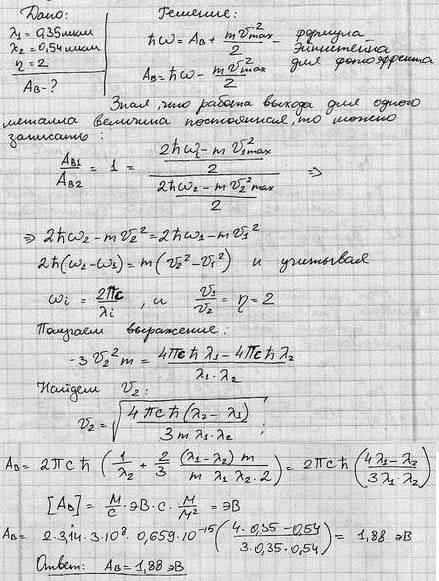 Дано: Решение:
λ₁ = 0,35 мкм ħω = Aв + mv²max/2 - формула Эйнштейна для фотоэффекта
λ₂ = 0,54 мкм
η = 2 Aв = ħω - mv²max/2
Aв - ?
Зная, что работа выхода для одного
металла величина постоянная, то можно
записать:
Aв1/Aв2 = 1 = ((2ħω₁ - mv₁²max)/2)/((2ħω₂ - mv₂²max)/2) ⇒
⇒ 2ħω₂ - mv₂² = 2ħω₁ - mv₁²
2ħ(ω₂-ω₁) = m(v₂² - v₁²) и учитывая
ωi = 2πc/λi, и v₁/v₂ = η = 2
Получаем выражение:
-3v₂²m = (4πcħλ₁ - 4πcħλ₂)/(λ₁·λ₂)
Найдем v₂:
v₂ = √(4πcħ(λ₂ - λ₁)/(3mλ₁·λ₂));
Aв = 2πcħ(1/λ₂ + 2/3 (λ₁-λ₂)m/(mλ₁λ₂·2)) = 2πcħ((4λ₁-λ₂)/(3λ₁λ₂))
[Aв] = м/с · эВ·с · м/м² = эВ
Aв = 2·3,14·3·10⁸·0,659·10⁻¹⁵((4·0,35-0,54)/(3·0,35·0,54)) = 1,88 эВ
Ответ: Aв = 1,88 эВ